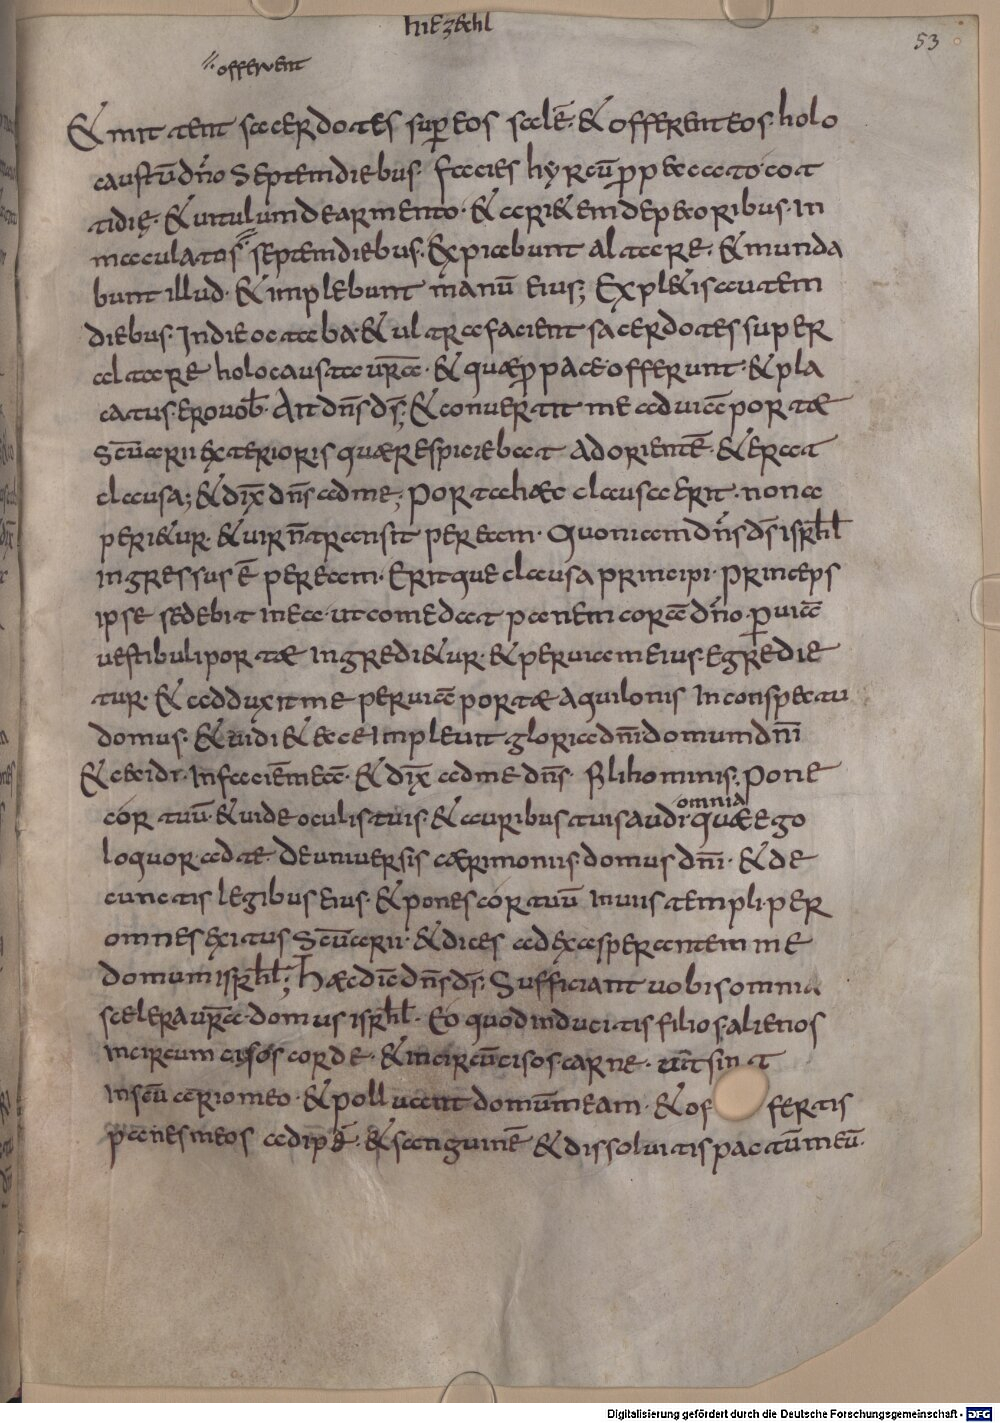 hiezechl
53
offerent
& mittent sacerdotes suꝑ eos salē· & offerenteos· holo
caustū dn̄o Septemdiebus· facies hyrcū ꝓ peccato· cot
tidię· & uitulum dearmento· & ari&em depecoribus· in
maculatos· septemdiebus· Expiabunt altare· & munda
bunt illud· & implebunt manū eius; Expl&isautem
diebus· Indie octaba· & ultra facient sacerdotes super
altare holocausta ur̄a· & quæ ꝓ pace offerunt· & pla
catus ero uob̄· Ait dn̄s ds̄; & conuertit me ad uiā portæ
Sc̄uarii exterioris quærespiciebat adorientē· & erat
clausa; & dix̄ dn̄s adme; Porta hæc clausa erit· non a
peri&ur· & uir n̄ transit per eam· Quoniam dn̄s ds̄ isrħl
ingressus ē per eam· Eritque clausa principi· Princeps
ipse sedebit inea· ut comedat panem corā dn̄o· ꝑ uiā
uestibuli portæ ingredi&ur· & per uiam eius· egredie
tur· & adduxit me per uiā portæ aquilonis Inconspectu
domus· & uidi & ecce Impleuit gloria dn̄i domum dn̄i
& cecidi· infaciēmeā· & dix̄ adme dn̄s· Filihominis; Pone
cor tuū· & uide oculis tuis· & auribus tuis audi quæ ego
omnia
loquor adte· De uniuersis cærimoniis domus dn̄i· & de
cunctis legibus eius· & pones cor tuū Inuiis templi· per
omnes exitus Sc̄uarii· & dices ad exasperantem me
domum isrħl; Hæc dic̄ dn̄s ds̄· Sufficiant uobis omnia
scelera ur̄a· domus isrħl· Eo quod inducitis filios· alienos
incircumcisos corde· & incircūcisos· carne· ut̄ sin t
Insc̄uario meo· & polluant domūmeam· & of fertis
panes meos adipē· & sanguinē & dissoluitis pactūmeū·
Digitalisierung gefördert durch die Deutsche Forschungsgemeinschaft - DFG